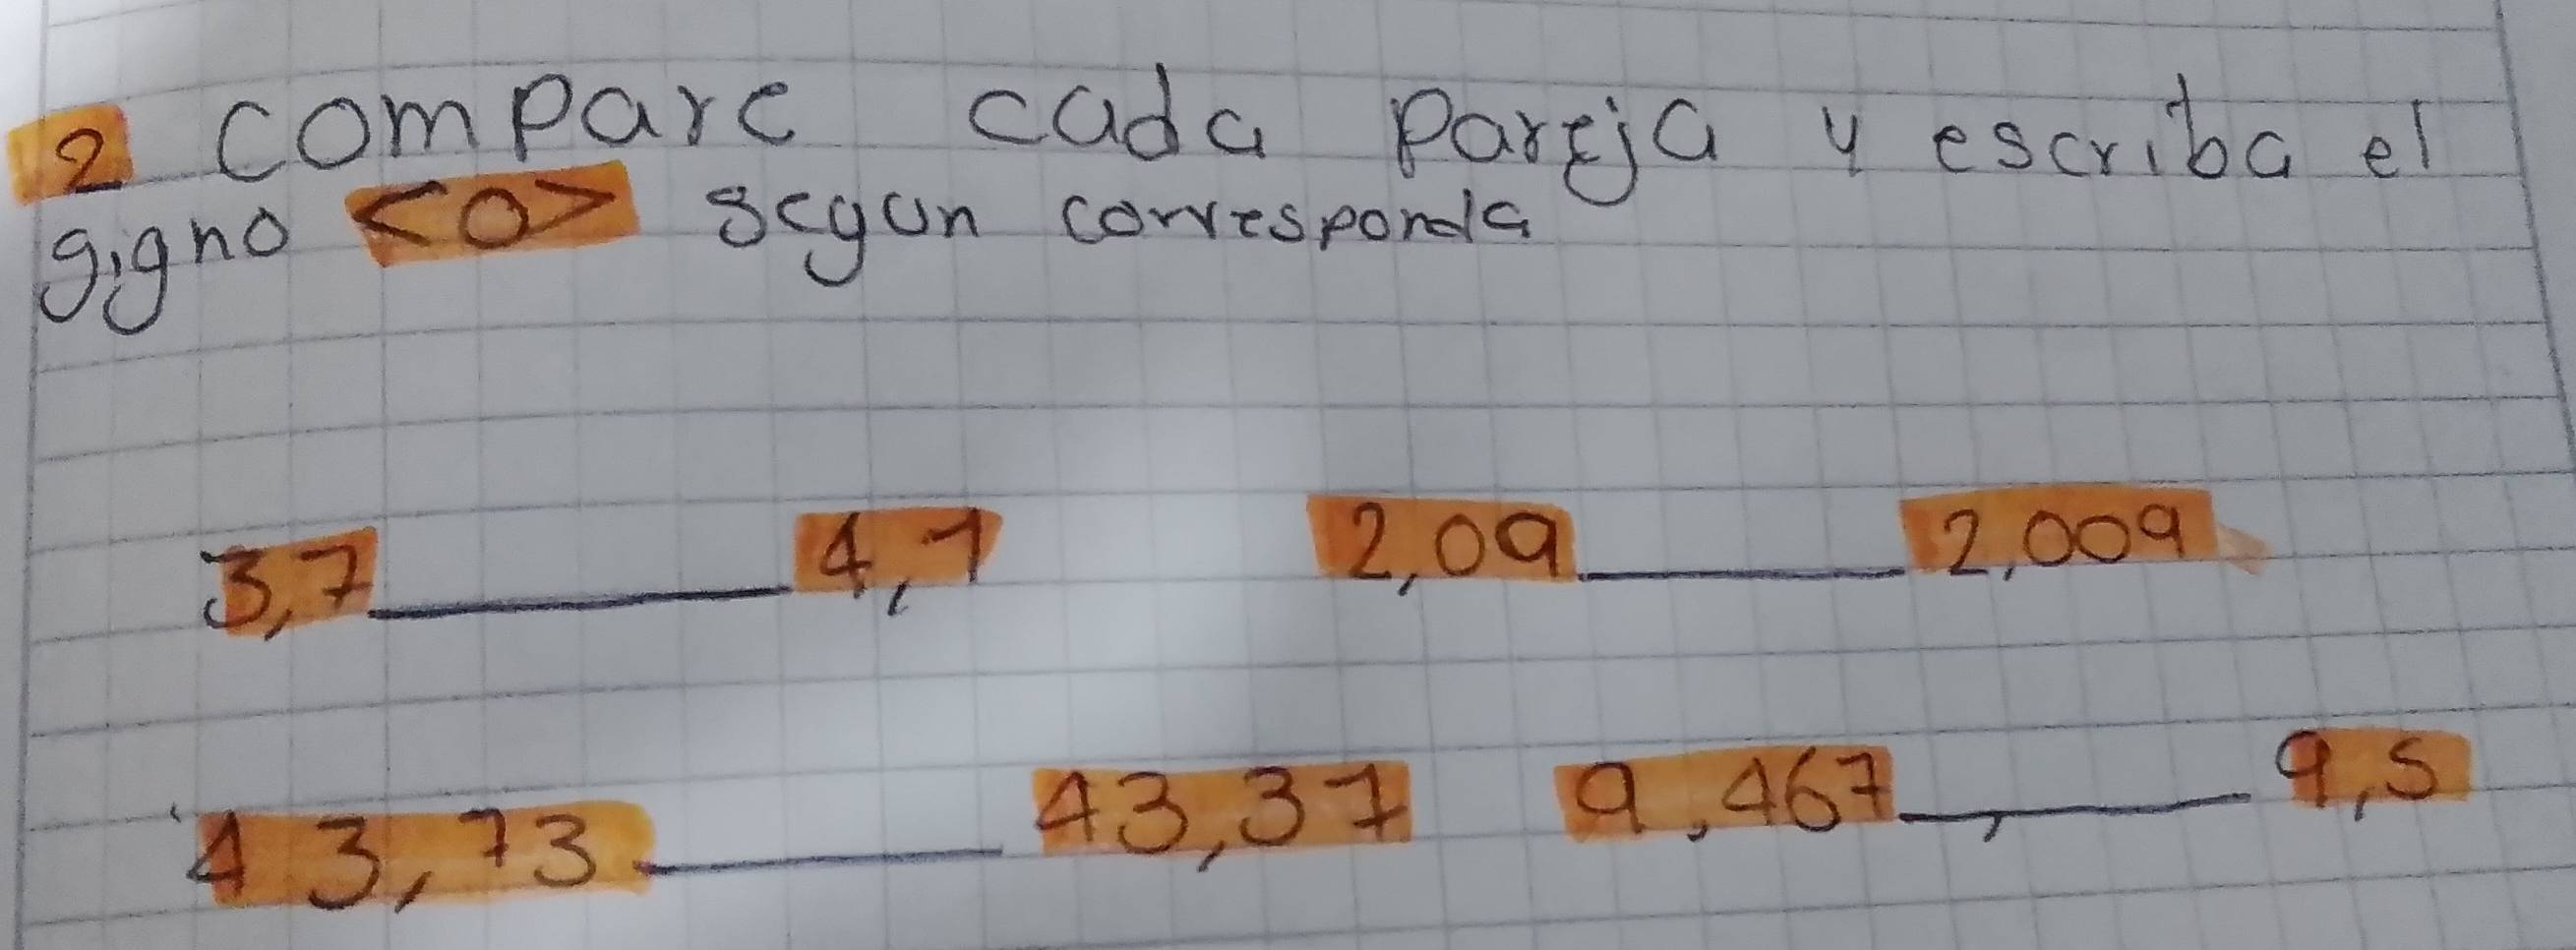 2 compare cada pareja y escriba el
signo <o> segun corresponda
3,7 ______ 4,1 2,09 ______ 2,009
43,73 ______ 43,37 9,467 ______ 9,5